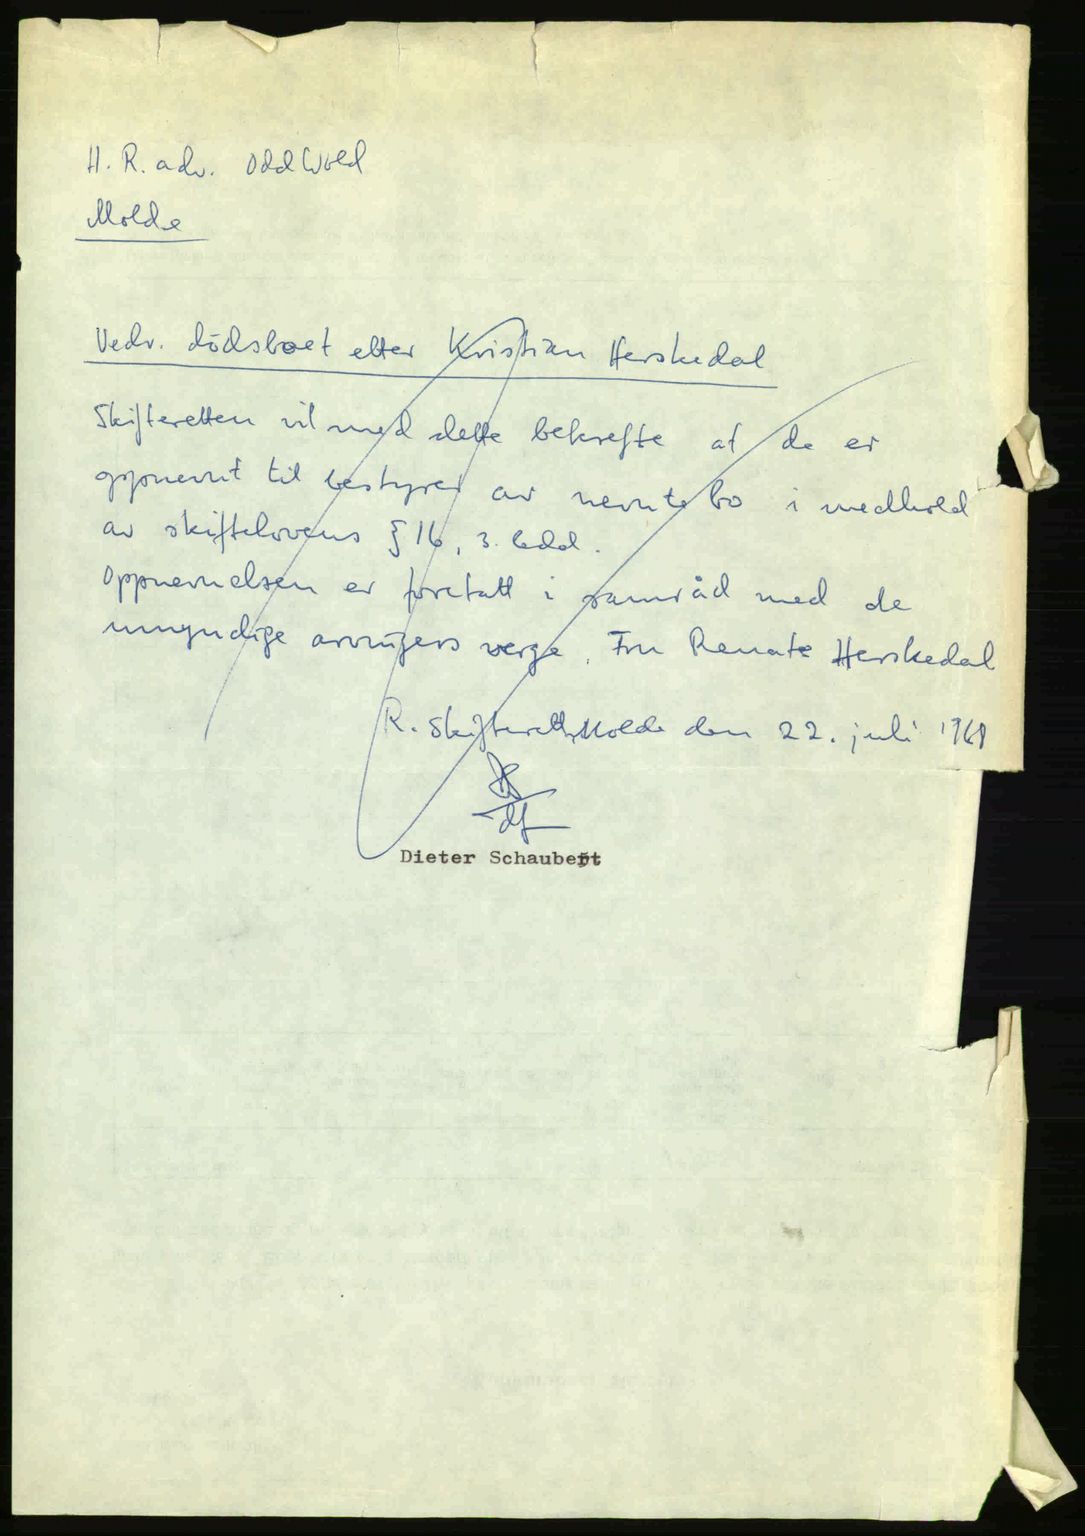 H. R. adv. Odd Wold
Molde
Vedr. dödsboet etter Kristian Herskedal
Skifteretten vil med dette bekrefte at de er
oppnevnt til bestyrer av nevnte bo i medhold
av skiftelovens § 16, 3. ledd.
Oppnevnelsen er foretatt i samråd med de
umyndige arvingers verge, Fru Renate Herskedal
R. Skifterett, Molde den 22. juli 1968
Dieter Schaubert